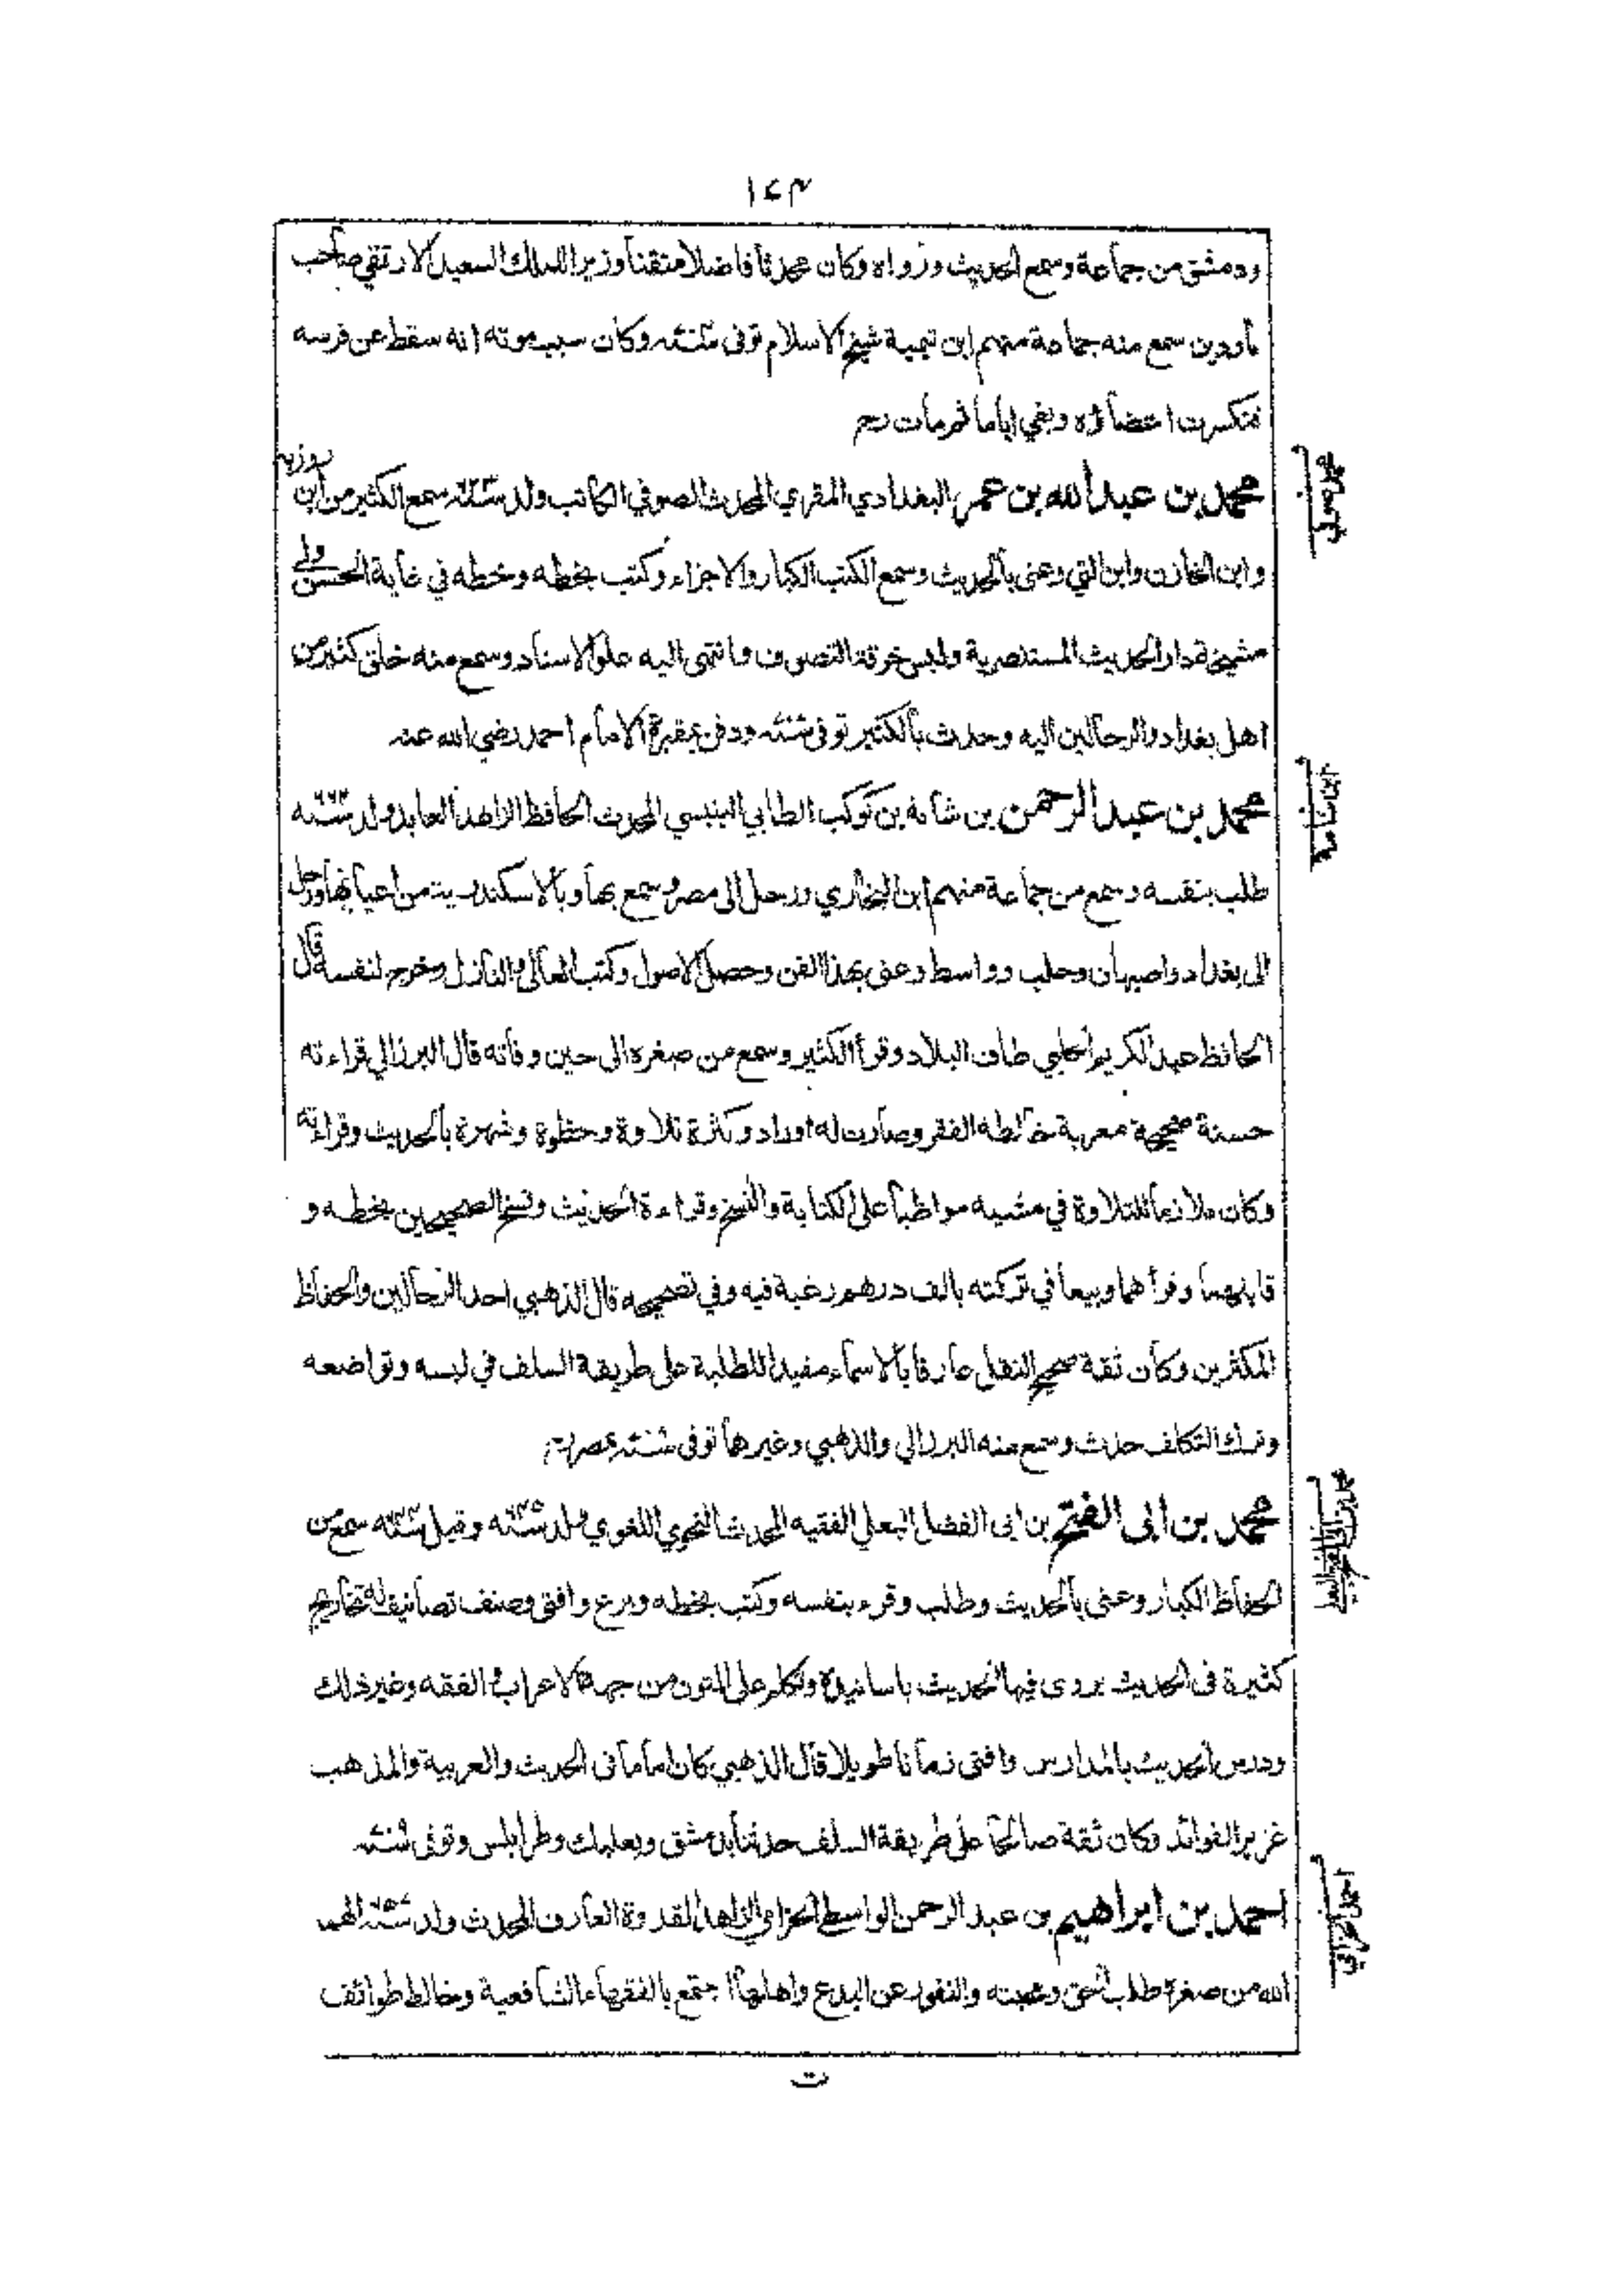 ١٤٣
ودمشق من جماعة وسمع الحديث ورواه وكان محدثا فاضلا متقنا وزيرا للملك السعيد الارتقي صاحب
ماردين سمع منه جماعة منهم ابن تيمية شيخ الاسلام توفى وكان سبب موته انه سقط عن فرسه
فتكسرت اعضاؤه وبقي اياما ثم مات رحم
محمد بن عبد الله بن عمر البغدادي المقري المحدث الصوفي الكاتب ولد سمع الكثير من ابن روزبه
وابن الخازن وابن اللتي وعنى بالحديث وسمع الكتب الكبار والاجزاء وكتب بخطه وخطه في غاية الحسن ولي
مشيخة دار الحديث المستنصرية ولبس خرقة التصوف وانتهى اليه علو الاسناد وسمع منه خلق كثير من
اهل بغداد والرحالين اليه وحدث بالكثير توفى ودفن بمقبرة الامام احمد رضي الله عنه
محمد بن عبد الرحمن بن شامة بن كوكب الطايي المحدث الحافظ الزاهد العابد ولد
طلب بنفسه وسمع من جماعة منهم ابن البخاري ورحل الى مصر وسمع بها وبالاسكندرية من اعيانها ورحل
الى بغداد واصبهان وحلب وواسط وعنى بهذا الفن وحصل الاصول وكتب العالى والنازل وخرج لنفسه قال
الحافظ عبد الكريم الحلبي طاف البلاد وقرأ الكثير وسمع من صغره الى حين وفاته قال البرزالي قراءته
حسنة صحيحة معربة خالطه الفقر وصارت له اوراد وكثرة تلاوة وحظوة وشهرة بالحديث وقراءته
وكان ملازما للتلاوة في مشيه مواظبا على الكتابة والنسخ وقراءة الحديث ونسخ الصحيحين بخطه و
قابلهما وقرأهما وبيعا في تركته بالف درهم رغبة فيه وفي تصحيحه قال الذهبي احد الرحالين والحفاظ
المكثرين وكان ثقة صحيح النقل عارفا بالاسماء مفيدا للطلبة على طريقة السلف في لبسه وتواضعه
وترك التكلف حدث وسمع منه البرزالي والذهبي وغيرهما توفى بمصر
محمد بن ابى الفتح بن ابى الفضل البعلي الفقيه المحدث النحوي اللغوي ولد وقيل سمع من
الحفاظ الكبار وعنى بالحديث وطلب وقرء بنفسه وكتب بخطه وبرع وافتى وصنف تصانيف له تخاريج
كثيرة فى الحديث يروى فيها الحديث باسانيده وتكلم على المتون من جهة الاعراب والفقه وغير ذلك
ودرس الحديث بالمدارس وافتى زمانا طويلا قال الذهبي كان اماما فى الحديث والعربية والمذهب
غزير الفوائد وكان ثقة صالحا على طريقة السلف حدثنا بدمشق وبعلبك وطرابلس وتوفى
احمد بن ابراهيم بن عبد الرحمن الواسطي الحزامي الزاهد القدوة العارف المحدث ولد الهمه
الله من صغره طلب الحق ومحبته والنفور عن البدع واهلها اجتمع بالفقهاء الشافعية وخالط طوائف
ت